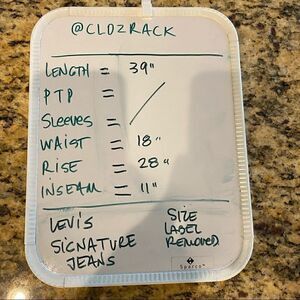 @CLDZRACK
LENGTH = 39"
PTP =
SLEEVES = /
WAIST = 18"
RISE = 28"
INSEAM = 11"
LEVI'S
SIGNATURE
JEANS
SIZE
LABEL
REMOVED
Sparco